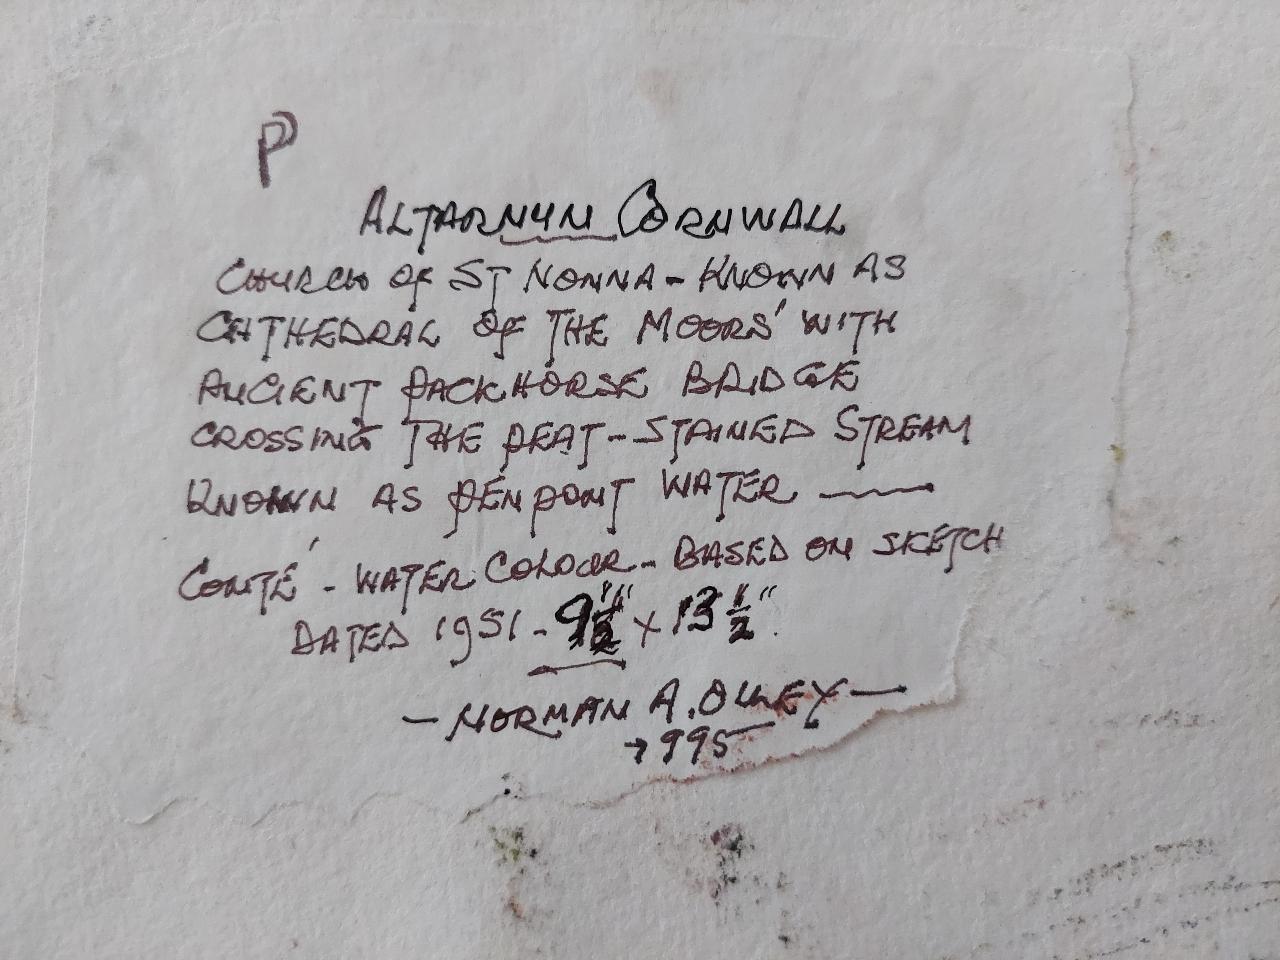 P
ALTARNUN CORNWALL
CHURCH OF ST NONNA - KNOWN AS
CATHEDRAL OF THE MOORS' WITH
ANCIENT PACKHORSE BRIDGE
CROSSING THE PEAT-STAINED STREAM
KNOWN AS PENPONT WATER —
CONTÉ - WATER COLOUR - BASED ON SKETCH
DATED 1951 - 9 1/2" x 13 1/2".
— NORMAN A. OLLEY —
1995